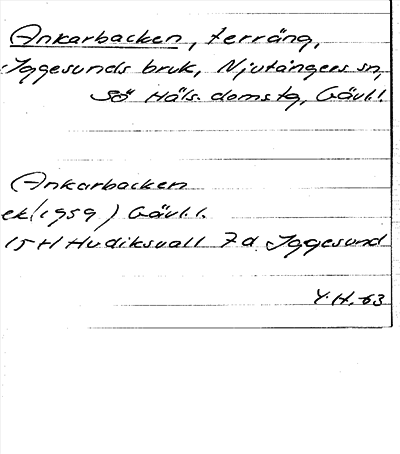 Ankarbacken, terräng,
Iggesunds bruk, Njutångers sn,
Sö Häls. domstg, Gävl.l.
Ankarbacken
ek (1959) Gävl.l.
15 H Hudiksvall 7 d. Iggesund
Y.H.-63